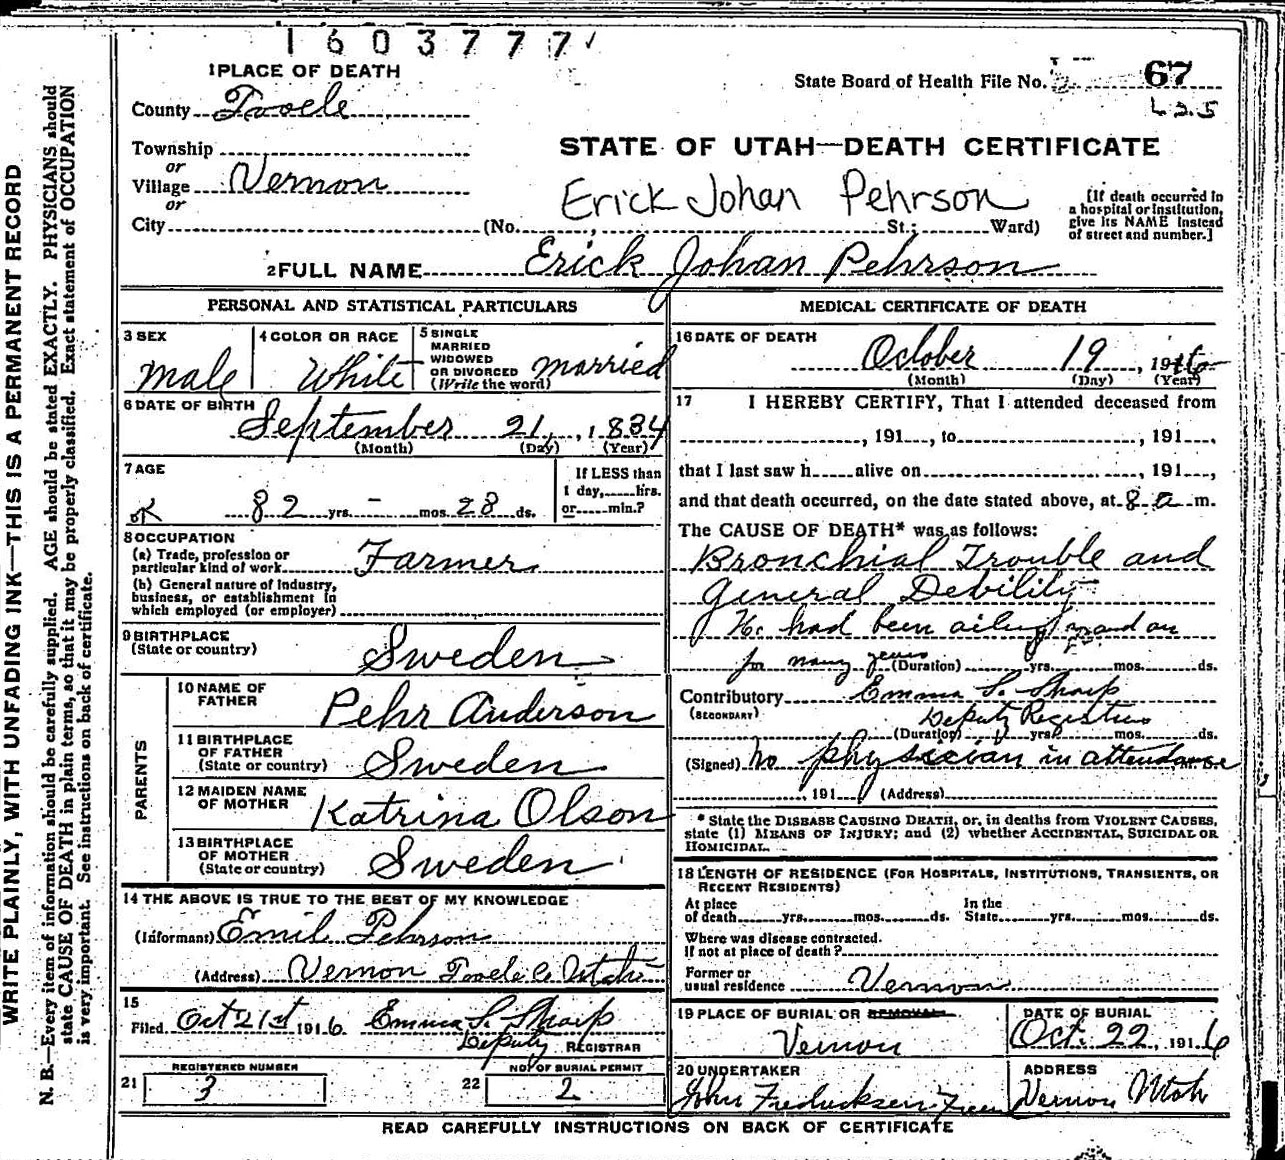 1603777
1 PLACE OF DEATH
State Board of Health File No. 67
County Tooele
Township
STATE OF UTAH—DEATH CERTIFICATE
or
Village Vernon
Erick Johan Pehrson
or
[If death occurred in
a hospital or institution,
give its NAME instead
of street and number.]
City (No. St.; Ward)
2 FULL NAME Erick Johan Pehrson
PERSONAL AND STATISTICAL PARTICULARS
3 SEX
Male
4 COLOR OR RACE
White
5 SINGLE
MARRIED
WIDOWED
OR DIVORCED
(Write the word)
married
6 DATE OF BIRTH
September 21, 1834
(Month) (Day) (Year)
7 AGE
82 yrs. - mos. 28 ds.
If LESS than
1 day, hrs.
or min.?
8 OCCUPATION
(a) Trade, profession or
particular kind of work Farmer
(b) General nature of industry,
business, or establishment in
which employed (or employer)
9 BIRTHPLACE
(State or country) Sweden
PARENTS
10 NAME OF
FATHER Pehr Anderson
11 BIRTHPLACE
OF FATHER
(State or country) Sweden
12 MAIDEN NAME
OF MOTHER Katrina Olson
13 BIRTHPLACE
OF MOTHER
(State or country) Sweden
14 THE ABOVE IS TRUE TO THE BEST OF MY KNOWLEDGE
(Informant) Emil Pehrson
(Address) Vernon Tooele Co Utah
15
Filed Oct 21st 1916. Emma S. Sharp
Deputy REGISTRAR
REGISTERED NUMBER
21 3
NO. OF BURIAL PERMIT
22 2
MEDICAL CERTIFICATE OF DEATH
16 DATE OF DEATH
October 19, 1916
(Month) (Day) (Year)
17 I HEREBY CERTIFY, That I attended deceased from
, 191 , to , 191 ,
that I last saw h alive on , 191 ,
and that death occurred, on the date stated above, at 8 a m.
The CAUSE OF DEATH* was as follows:
Bronchial Trouble and
General Debility
He had been ailing
for many years (Duration) yrs. mos. ds.
Contributory Emma S. Sharp
(SECONDARY) Deputy Registrar
(Duration) yrs. mos. ds.
(Signed) No physician in attendance
, 191 (Address)
* State the DISEASE CAUSING DEATH, or, in deaths from VIOLENT CAUSES,
state (1) MEANS OF INJURY; and (2) whether ACCIDENTAL, SUICIDAL OR
HOMICIDAL.
18 LENGTH OF RESIDENCE (FOR HOSPITALS, INSTITUTIONS, TRANSIENTS, OR
RECENT RESIDENTS)
At place
of death yrs. mos. ds.
In the
State yrs. mos. ds.
Where was disease contracted.
If not at place of death?
Former or
usual residence Vernon
19 PLACE OF BURIAL OR REMOVAL
Vernon
DATE OF BURIAL
Oct. 22, 1916
20 UNDERTAKER
John Fredricksen
ADDRESS
Vernon Utah
READ CAREFULLY INSTRUCTIONS ON BACK OF CERTIFICATE
WRITE PLAINLY, WITH UNFADING INK—THIS IS A PERMANENT RECORD
N. B.—Every item of information should be carefully supplied. AGE should be stated EXACTLY. PHYSICIANS should
state CAUSE OF DEATH in plain terms, so that it may be properly classified. Exact statement of OCCUPATION
is very important. See instructions on back of certificate.